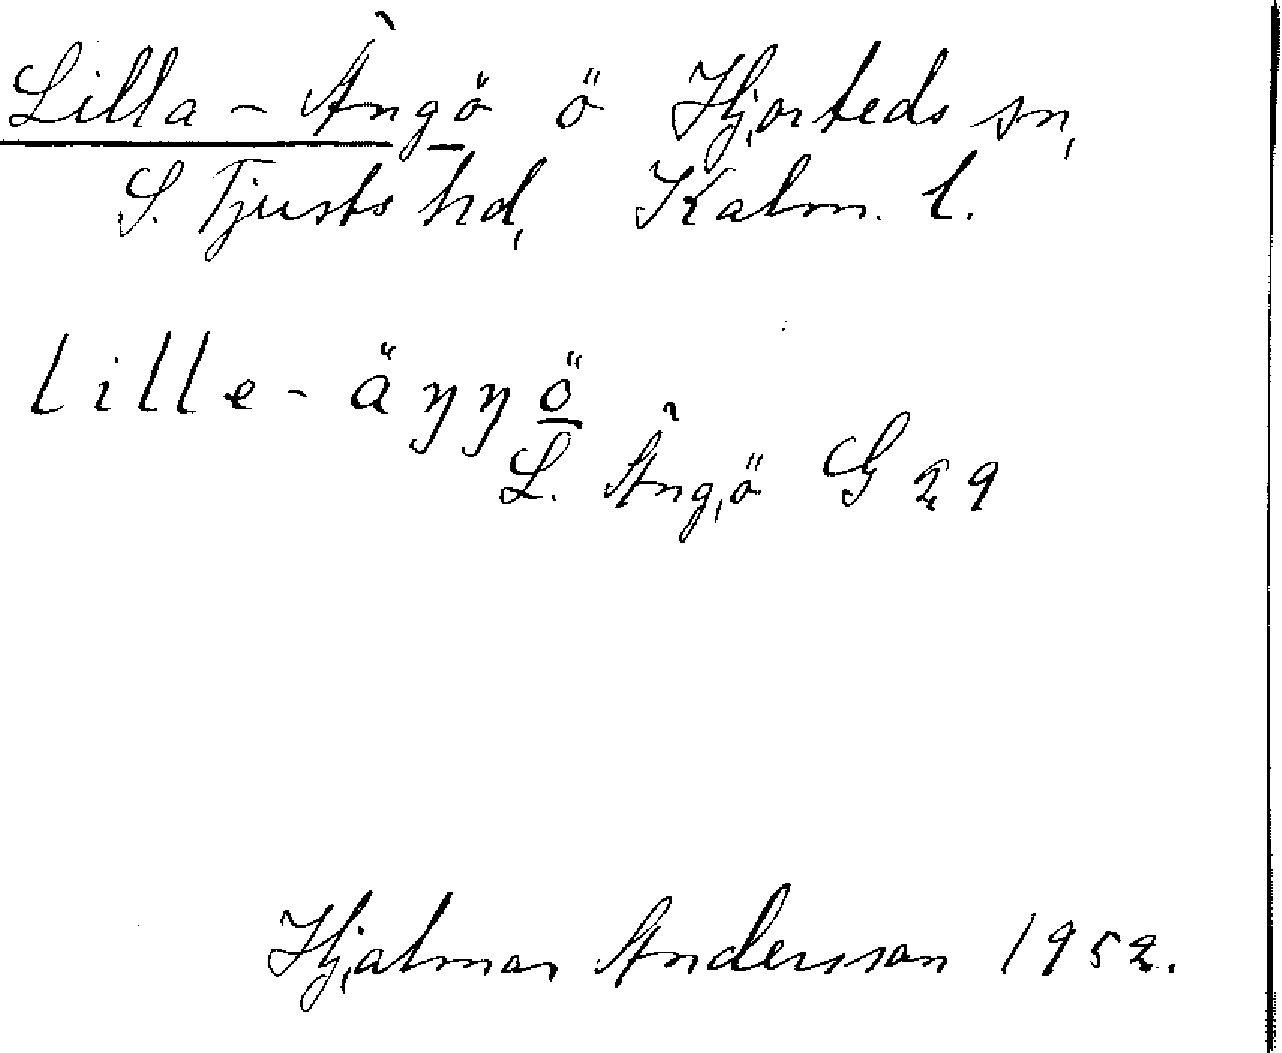 Lilla-Ängö ö Hjorteds sn,
S. Tjusts hd, Kalm. l.
lille-äŋŋö
L. Ängö G 29
Hjalmar Andersson 1952.